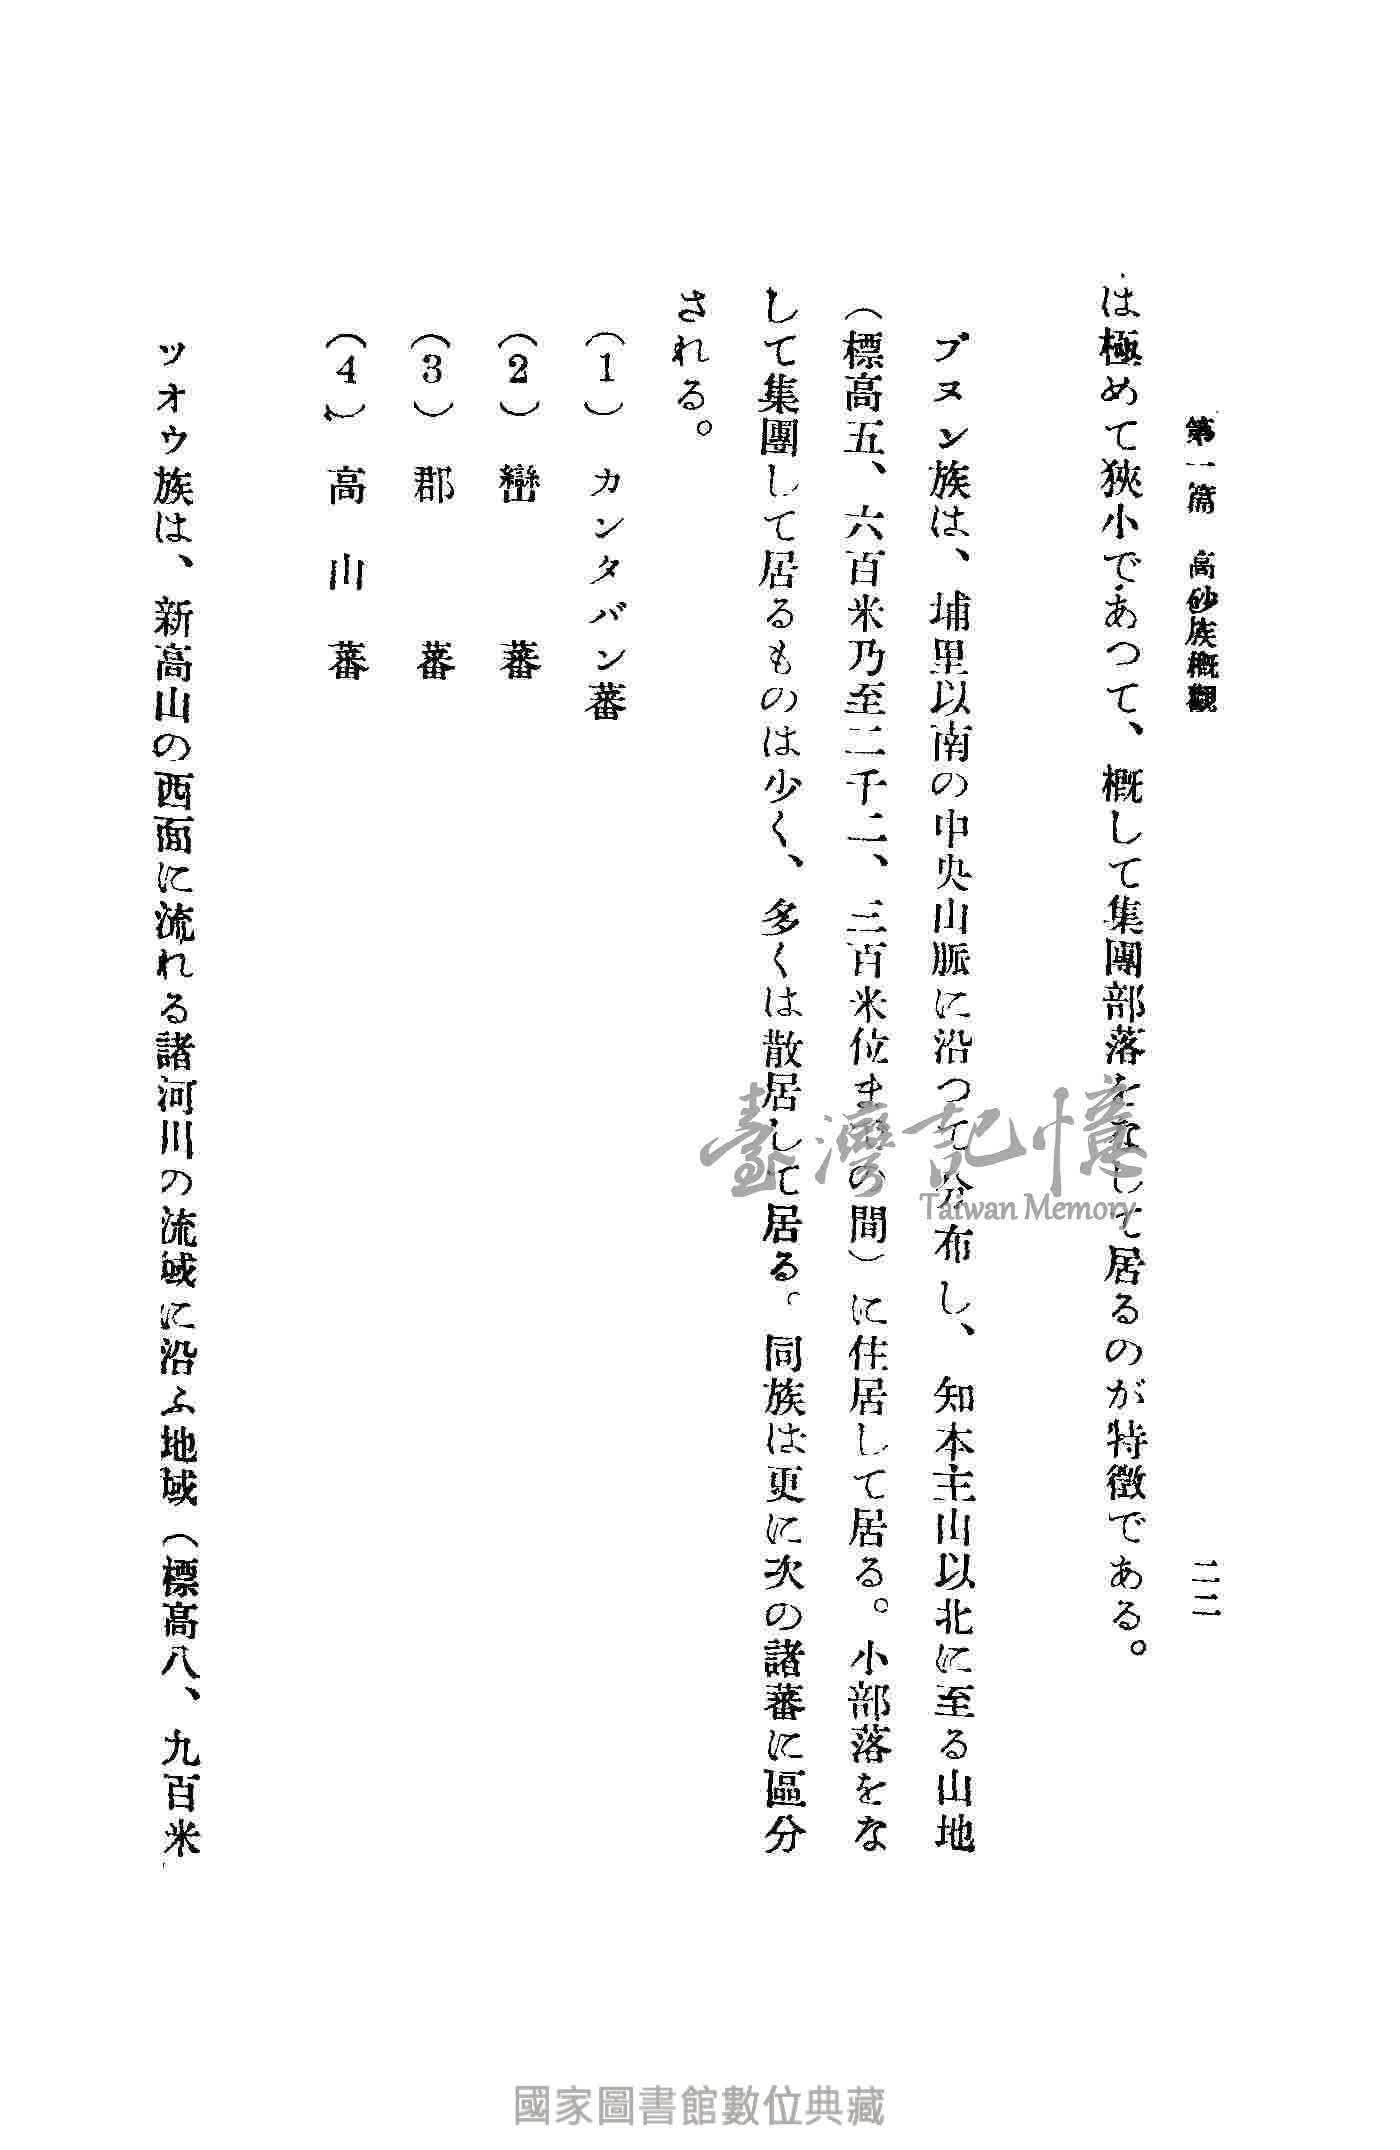 第一篇　高砂族概觀　二二
は極めて狹小であつて、概して集團部落をなして居るのが特徴である。
ブヌン族は、埔里以南の中央山脈に沿つて分布し、知本主山以北に至る山地
（標高五、六百米乃至二千二、三百米位までの間）に住居して居る。小部落をな
して集團して居るものは少く、多くは散居して居る。同族は更に次の諸蕃に區分
される。
（1）カンタバン蕃
（2）巒蕃
（3）郡蕃
（4）高山蕃
ツオウ族は、新高山の西面に流れる諸河川の流域に沿ふ地域（標高八、九百米
臺灣記憶
Taiwan Memory
國家圖書館數位典藏